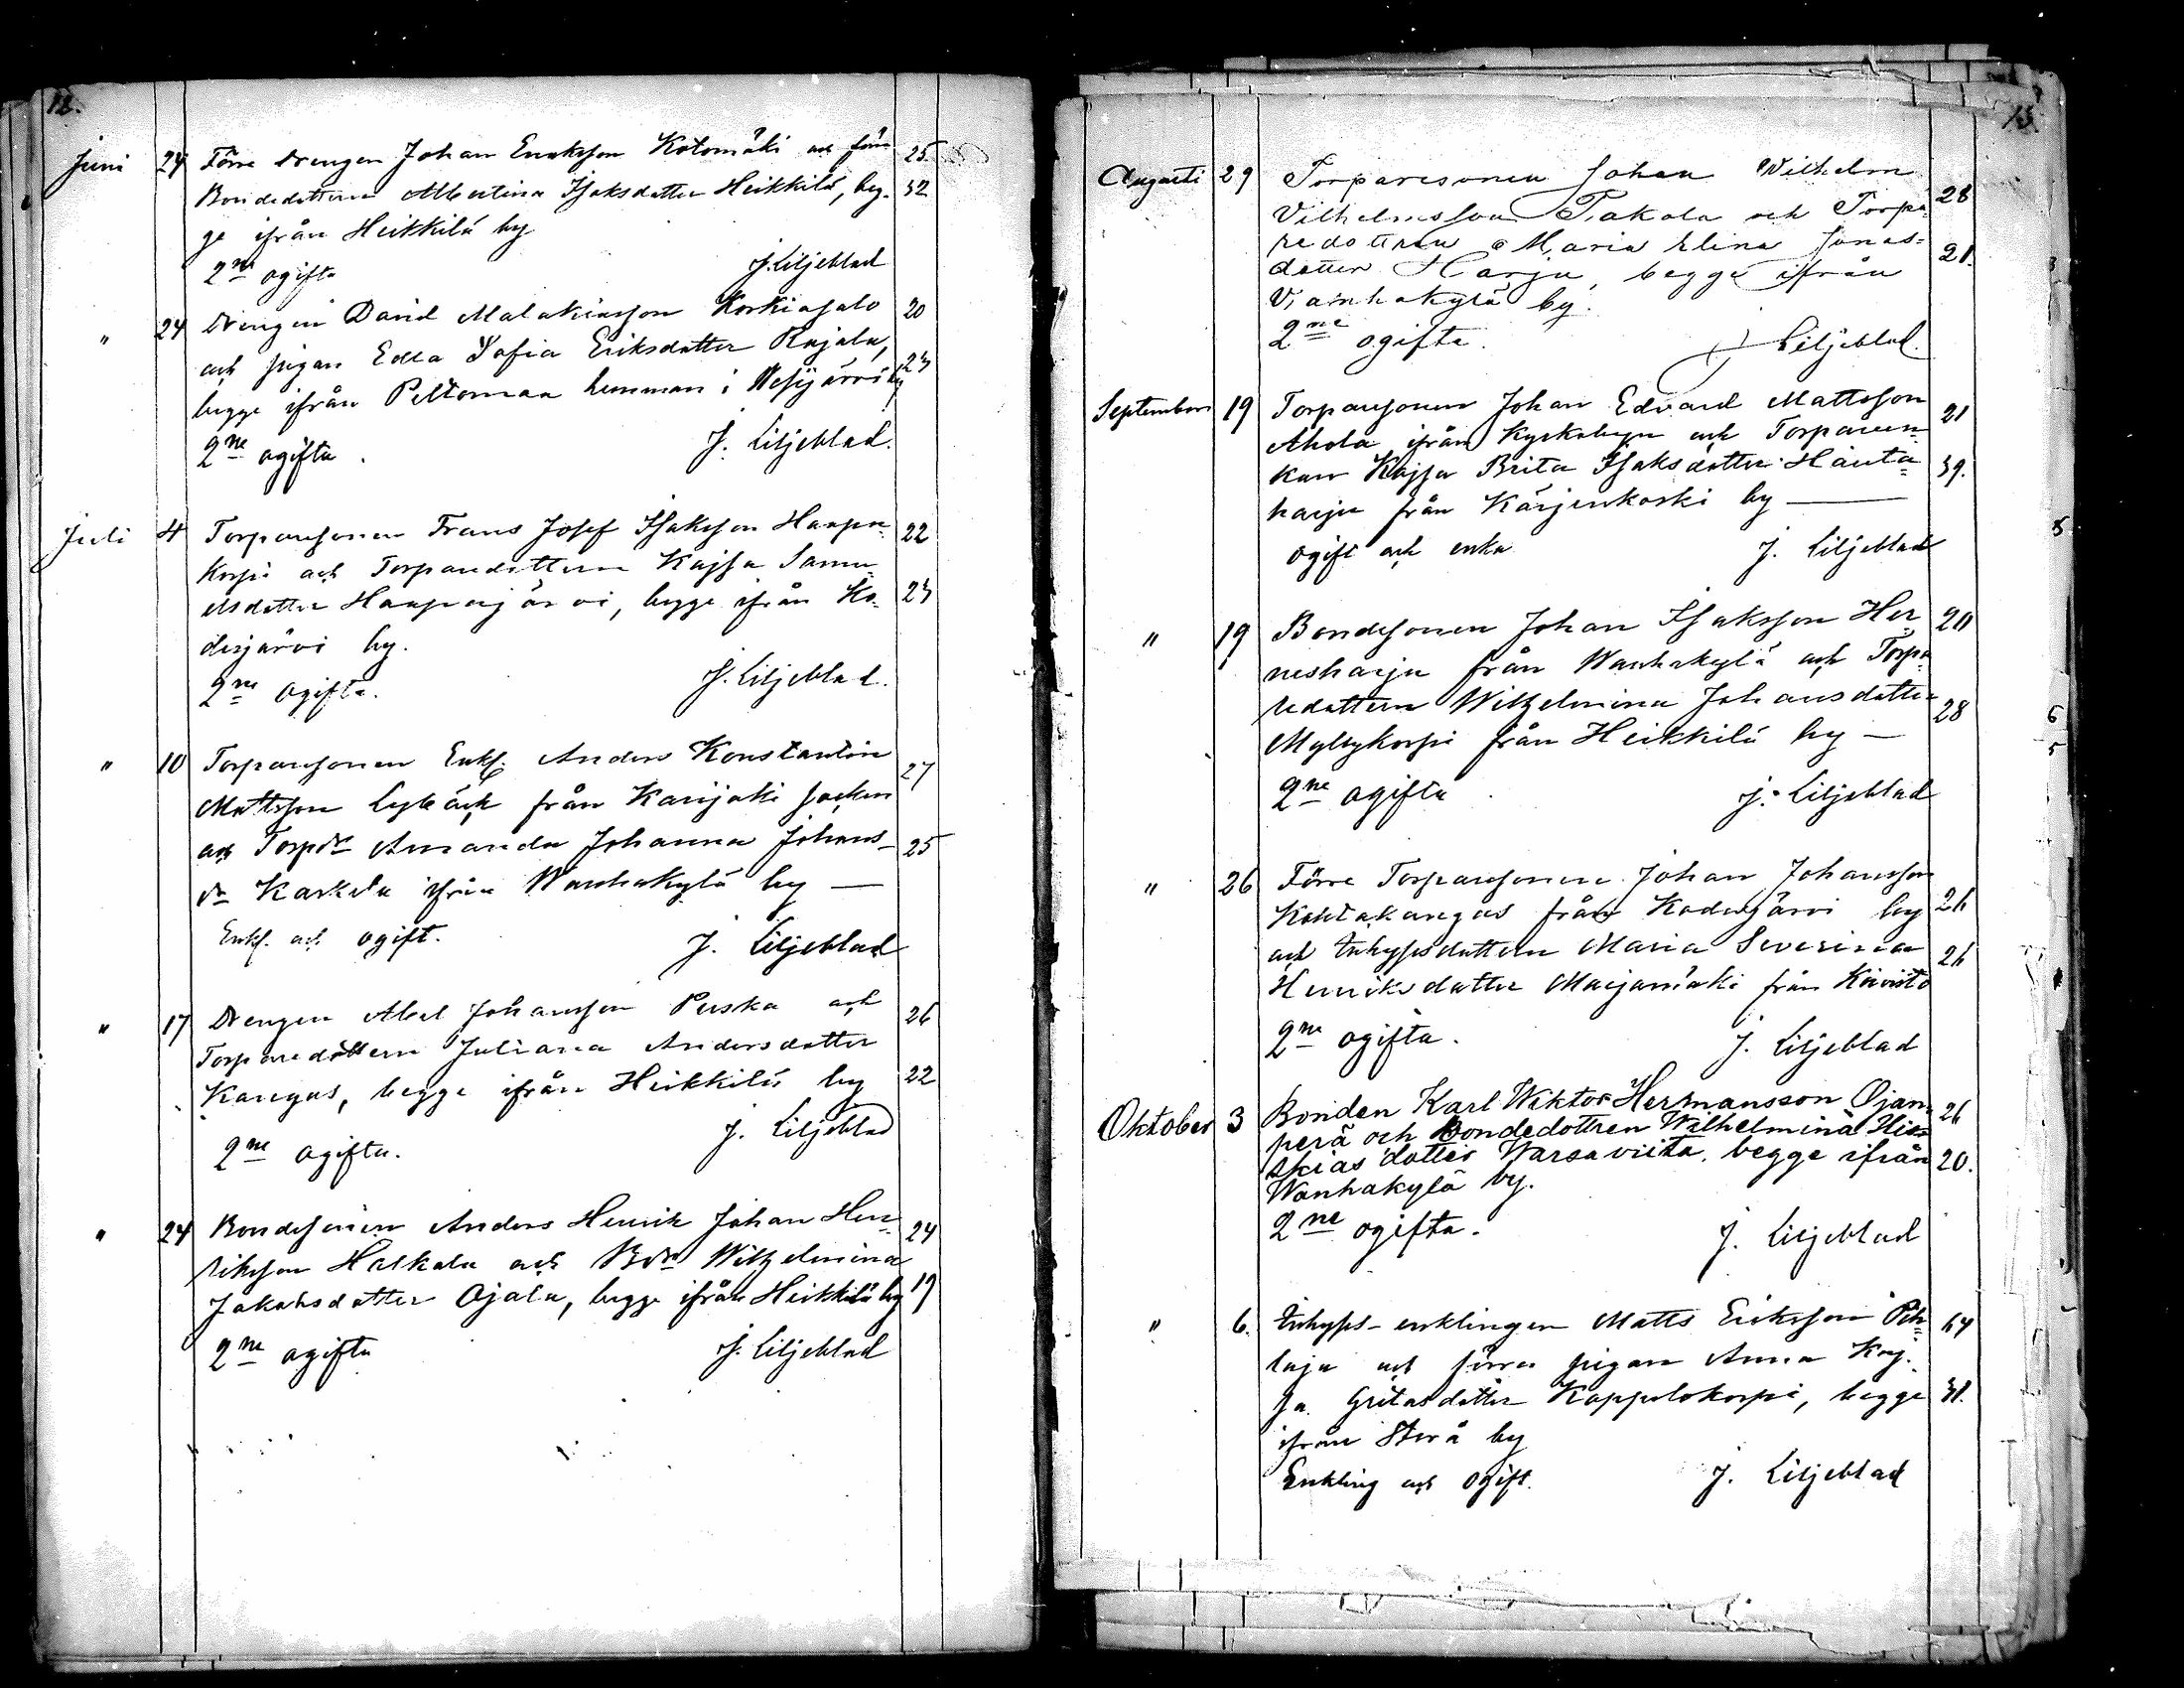 12.
Juni 24 Förre Drengen Johan Eriksson Kotomäki och förra 25
Bondedottren Albertina Isaksdotter Heikkilä, beg- 32
ge ifrån Heikkilä by
2ne ogifta J. Liljeblad
" 24 Drengen David Malakiasson Korkiasalo 20
och pigan Edla Sofia Eriksdotter Rajala, 23
begge ifrån Peltomaa hemman i Wesijärvi by
2ne ogifta. J. Liljeblad.
Juli 4 Torparesonen Frans Josef Isaksson Haapa= 22
korpi och Torparedottren Kajsa Samu=
elsdotter Haapajärvi, begge ifrån Ko= 23
desjärvi by.
2ne ogifta. J. Liljeblad.
" 10 Torparesonen Enkl. Anders Konstantin 27
Mattsson Lybäck från Karijoki socken
och Torpdr Amanda Johanna Johans- 25
dr Karkela ifrån Wanhakylä by —
Enkl. och ogift. J. Liljeblad
" 17 Drengen Abel Johansson Puska och 26
Torparedottern Juliana Andersdotter
Kangas, begge ifrån Heikkilä by 22
2ne ogifta. J. Liljeblad
" 24 Bondesonen Anders Henrik Johan Hen= 24
riksson Halkola och Bdr Wilhelmina
Jakobsdotter Ojala, begge ifrån Heikkilä by 19
2ne ogifta J. Liljeblad
13.
Augusti 29 Torparesonen Johan Wilhelm
Vilhelmsson Takala och Torpa 28
redottren Maria Elina Jonas=
dotter Harju, begge ifrån 21.
Vanhakylä by.
2ne ogifta. J Liljeblad.
September 19 Torparesonen Johan Edvard Mattsson 21
Ahola ifrån Kyrkobyn och Torpareen=
kan Kajsa Brita Isaksdotter Hauta= 39.
harju från Kärjenkoski by —
ogift och enka J. Liljeblad
" 19 Bondesonen Johan Isaksson Her 20
nesharju från Wanhakylä och Torpa=
redottern Wilhelmina Johansdotter 28
Myllykorpi från Heikkilä by —
2ne ogifta. J. Liljeblad
" 26 Förre Torparesonen Johan Johansson
Kohtakangas från Kodesjärvi by 26
och Inhysesdottern Maria Severina 26
Henriksdotter Marjamäki från Koivisto
2ne ogifta. J. Liljeblad
Oktober 3 Bonden Karl Wiktor Hermansson Ojan= 26
perä och Bondedottren Wilhelmina His=
skias dotter Warsaviita, begge ifrån 20.
Wanhakylä by.
2ne ogifta. J. Liljeblad
" 6. Inhyses-enklingen Matts Eriksson Pih= 64
laja och förra pigan Anna Kaj=
sa Gretasdotter Kappelokorpi, begge 31.
ifrån Storå by
Enkling och ogift. J. Liljeblad